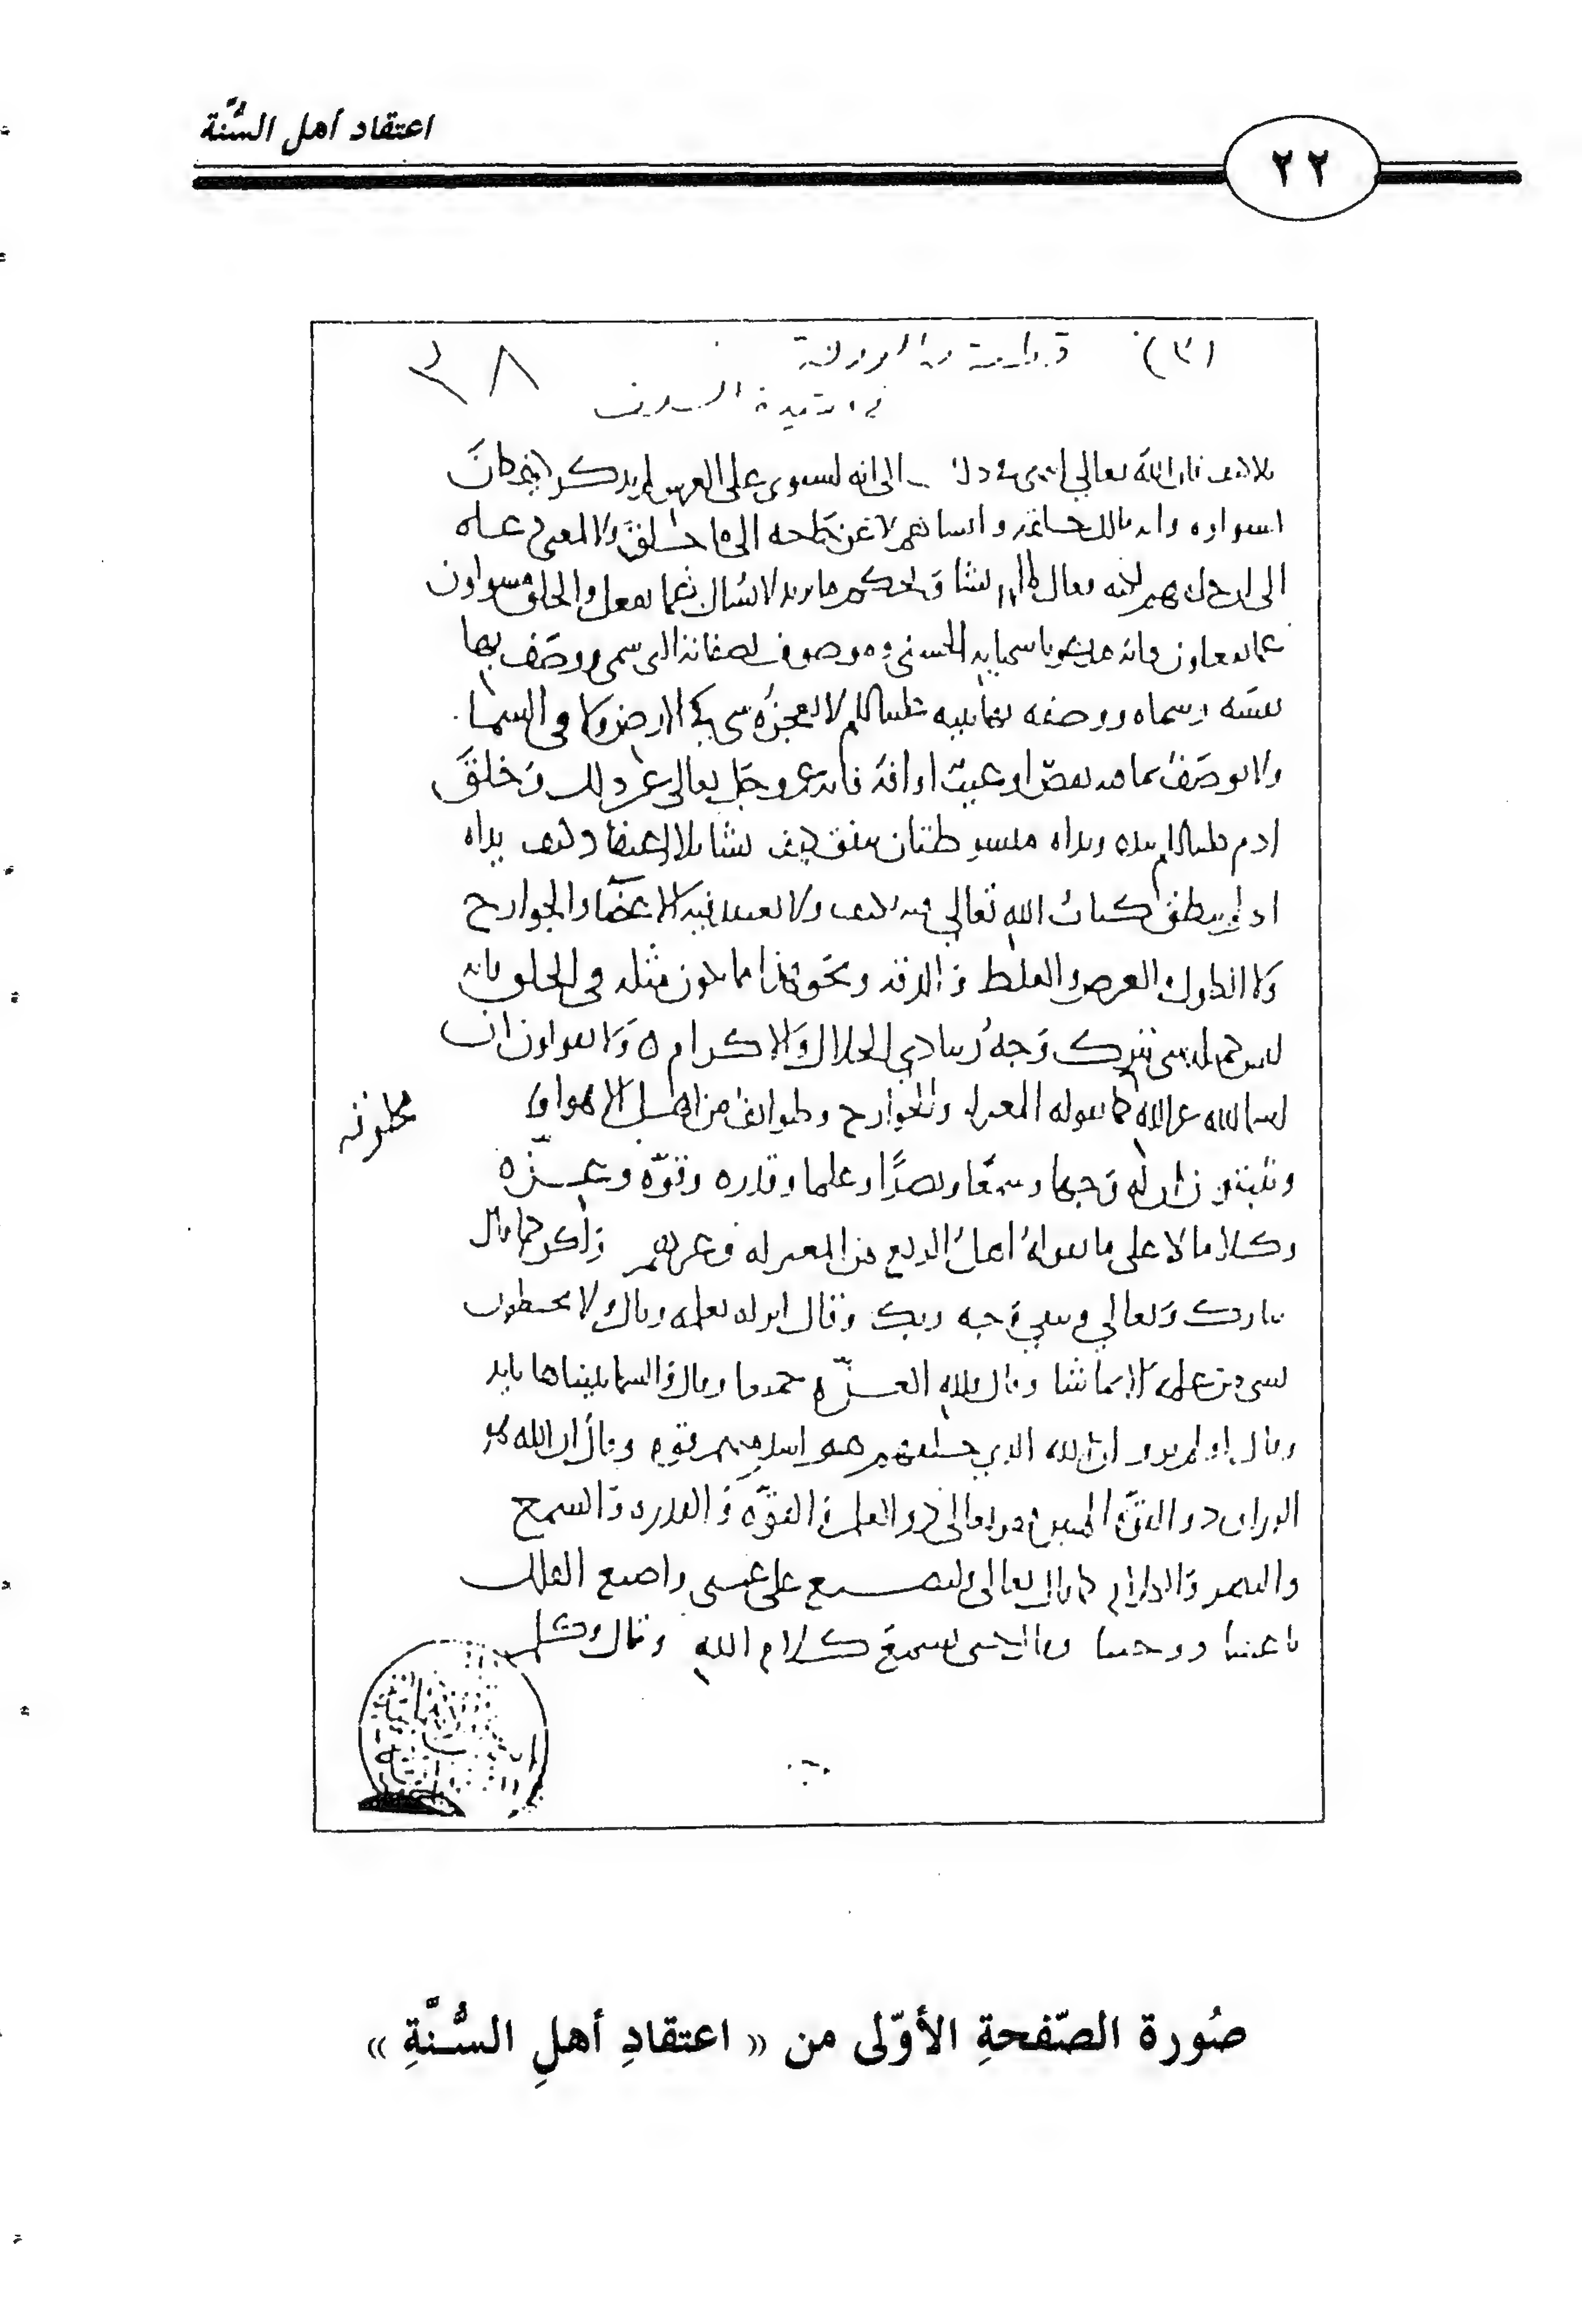 اعتقاد أهل السُّنة
٢٢
(٣) قطعة من
في عقيدة السلف
٣٨
بلا كيف فان الله تعالى الى انه استوى على العرش ولم يذكر كيف كان
استواوه وانه مالك خلقه وانشاهم لا عن حاجه الى ما خلق ولا لمعنى دعاه
الى ان خلقهم لكنه فعال لما يشا ويحكم ما يريد لا يسال عما يفعل والخلق مسولون
عما يفعلون وانه مدعو باسمايه الحسنى وموصوف بصفاته التى سمى ووصف بها
نفسه وسماه ووصفه بها نبيه عليه السلام لا يعجزه شى في الارض ولا في السما
ولا يوصف بما فيه نقص او عيب او افه فانه عز وجل تعالى عن ذلك وخلق
ادم عليه السلام بيده ويداه مبسوطتان ينفق كيف يشا بلا اعتقاد كيف يداه
اذ لم ينطق كتاب الله تعالى فيه بكيف ولا يعتقد فيه الاعضا والجوارح
ولا الطول والعرض والغلظ والدقه ونحو هذا مما يكون مثله في الخلق فانه
ليس كمثله شى تبرك وجه ربنا ذي الجلال والاكرام ٥ ولا يقولون ان
اسما الله غير الله كما يقوله المعتزله والخوارج وطوايف من اهل الاهوا
مخلوقه
ويثبتون ان له وجها وسمعا وبصرًا وعلما وقدره وقوّه وعزّه
وكلاما لا على ما يقوله اهل الزيغ من المعتزله وغيرهم ولكن كما قال
تبارك وتعالى ويبقى وجه ربك وقال انزله بعلمه وقال ولا يحيطون
بشى من علمه الا بما شا وقال فلله العزّه جميعا وقال والسما بنيناها بايد
وقال اولم يروا ان الله الذي خلقهم هو اشد منهم قوه وقال ان الله هو
الرزاق ذو القوّه المتين فهو تعالى ذو العلم والقوّه والقدره والسمع
والبصر والكلام كما قال تعالى ولتصنع على عينى واصنع الفلك
باعيننا ووحينا وقال حتى يسمع كلام الله وقال وكلم
صُورة الصّفحةِ الأوّلى من « اعتقادِ أهلِ السُّنَّةِ »